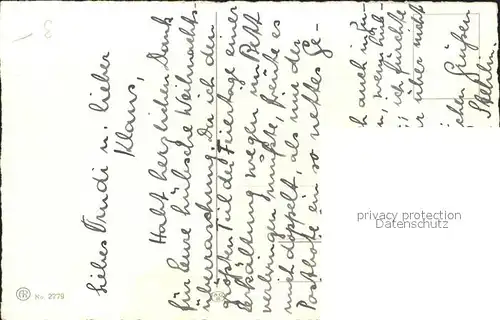 Liebes Trudi u. lieber
Klaus,
Habt herzlichen Dank
für Eure hübsche Weihnachts-
überraschung. Da ich den
größten Teil der Feiertage einer
Erkältung wegen im Bett
verbringen mußte, freute es
mich doppelt, als mir der
Postbote ein so nettes Ge-
auch in
wenn
ich fürchte
aber nicht
Grüßen
privacy protection
www.ansichtskartenversand.com
No. 2979